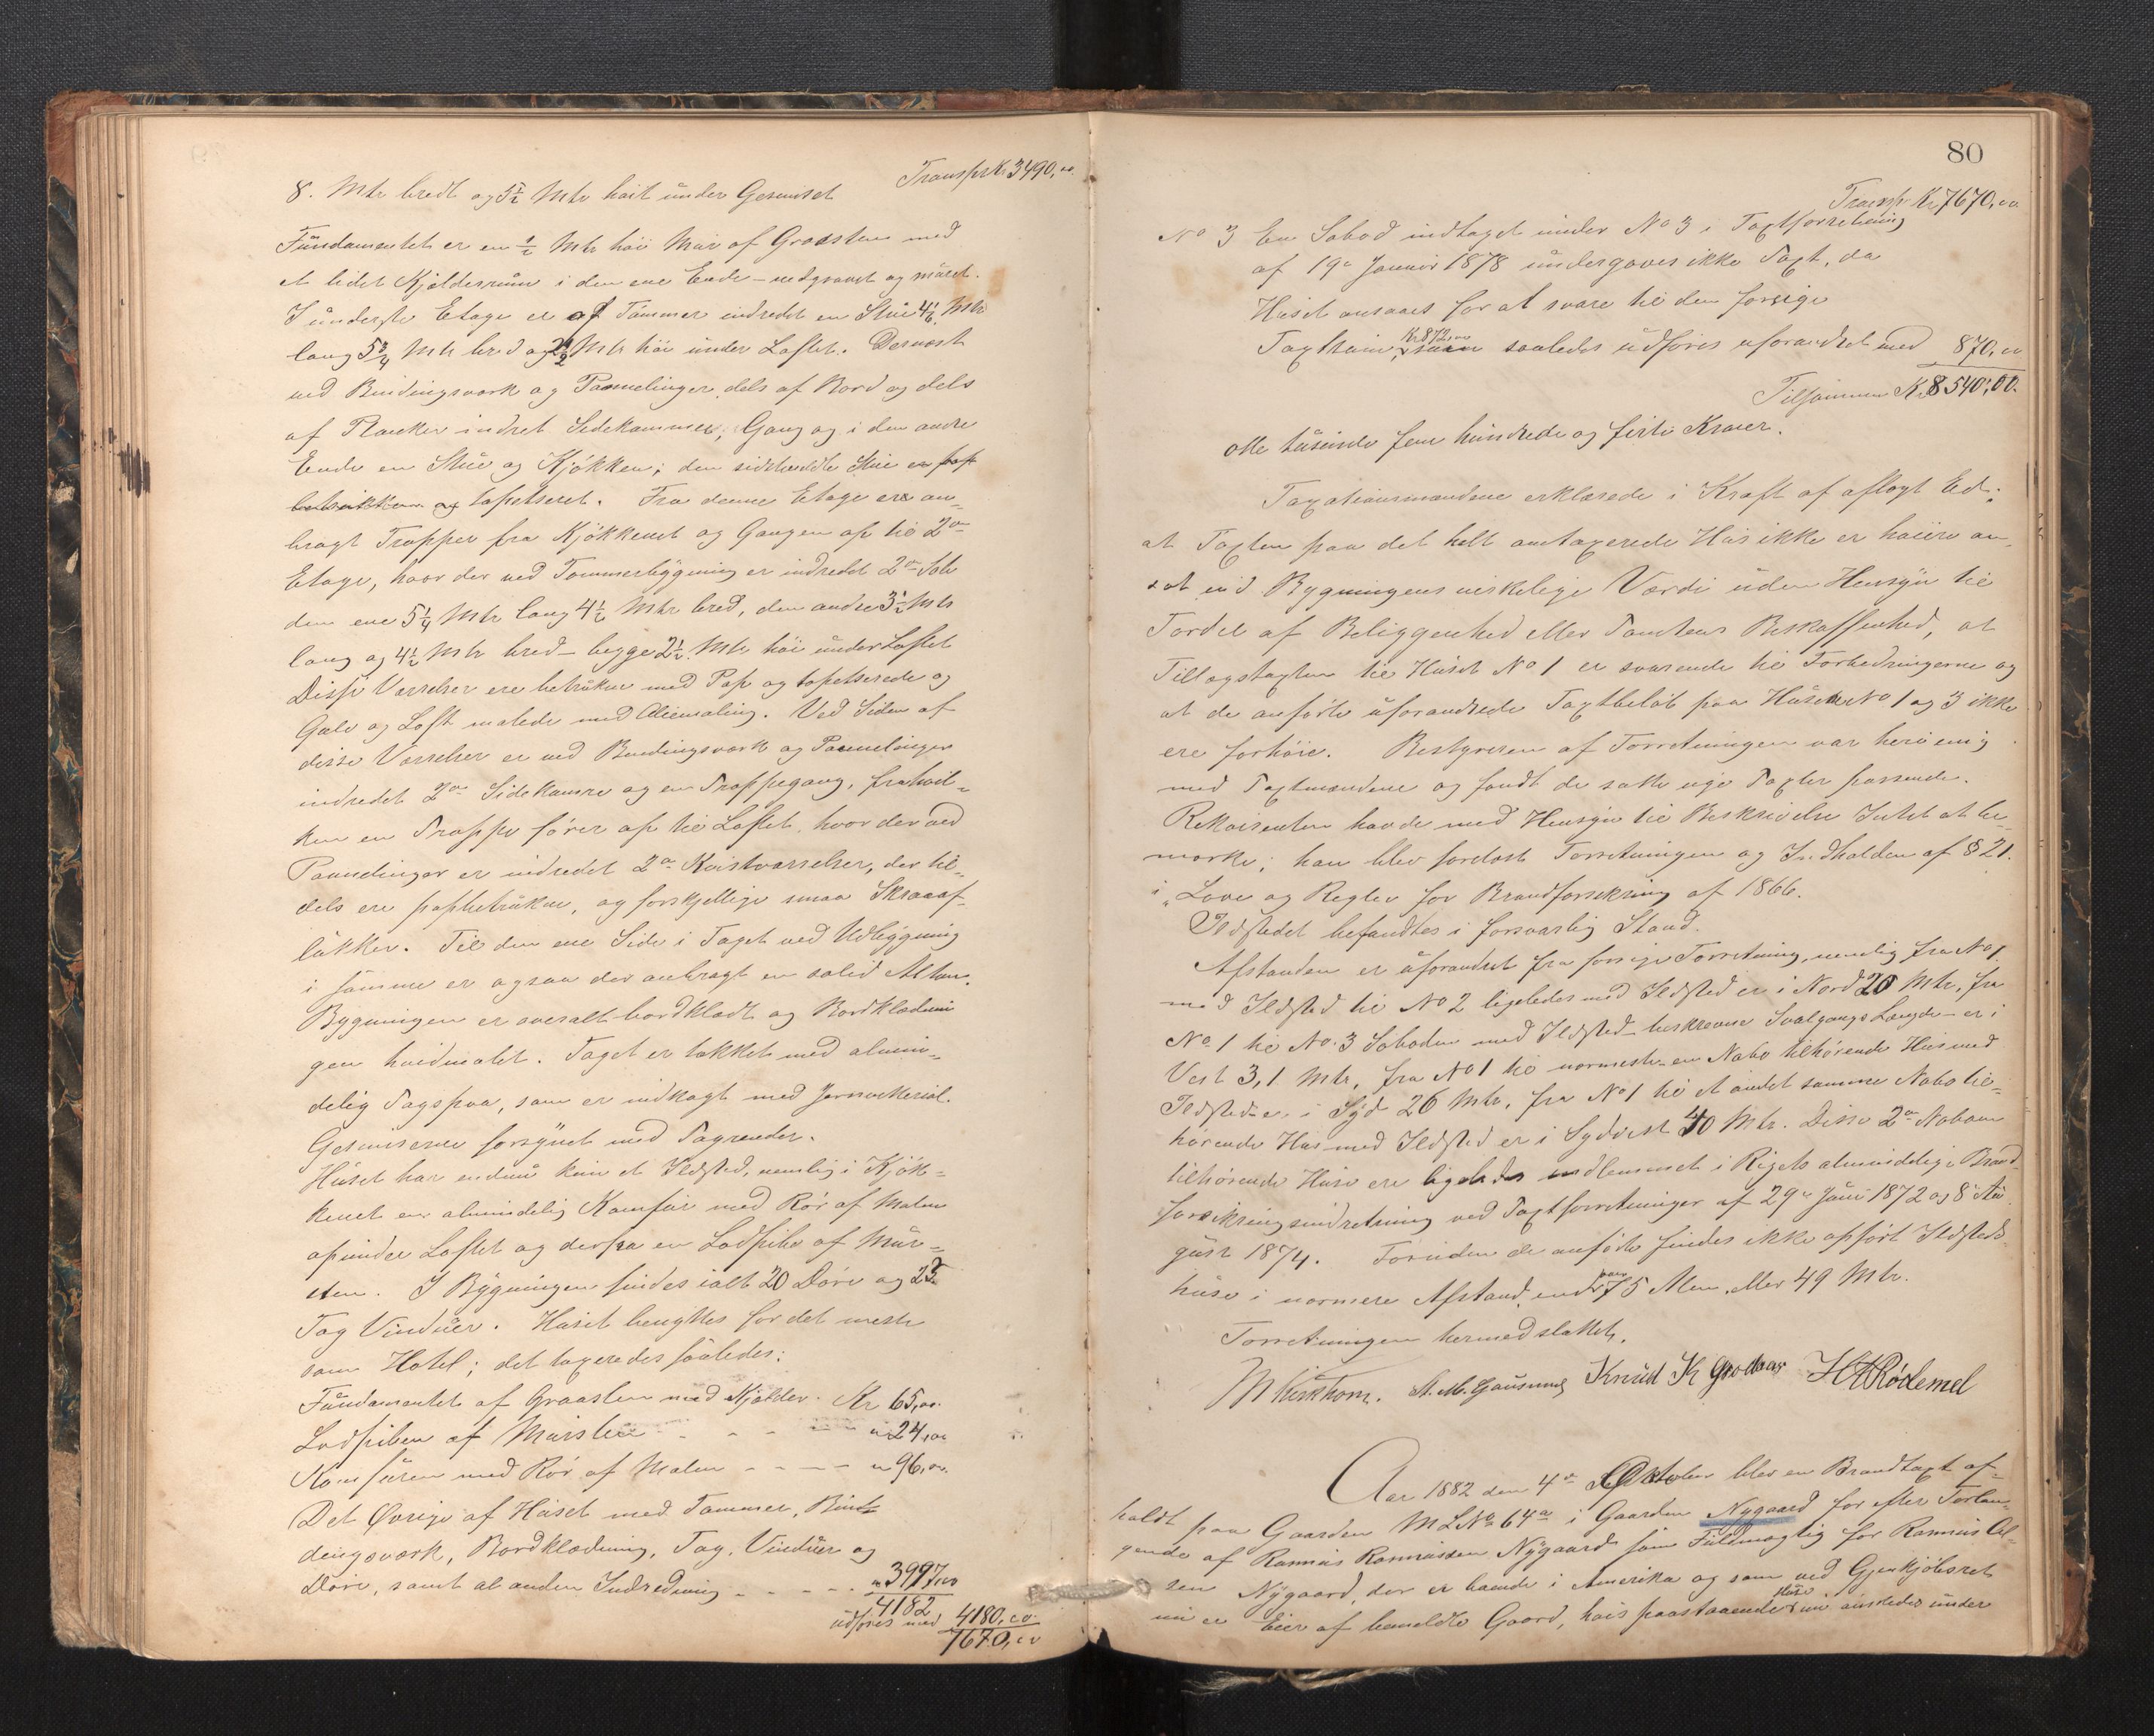 Transp. Kr 3490,00.
8. Mtr bredt og 5½ Mtr høit under Gesimset
Fundamentet er en ½ Mtr høi Mur af Graasten med
et lidet Kjælderrum i den ene Ende – nedgravet og muret.
I underste Etage er af Tømmer indredet en Stue 4½ Mtr
lang 5¾ Mtr bred og 2½ Mtr høi under Loftet. Dernæst
ved Bindingsværk og Panelinger dels af Bord og dels
af Planker indret Sidekammer, Gang og i den andre
Ende en Stue og Kjøkken; den sidstmeldte Stue er pap
betrukken og tapetseret. Fra denne Etage ere an-
bragt Trapper fra Kjøkkenet og Gangen op til 2den
Etage, hvor der ved Tømmerbygning er indredet 2de Sale
den ene 5¼ Mtr lang 4½ Mtr bred, den andre 3½ Mtr
lang og 4½ Mtr bred – begge 2½ Mtr høi under Loftet
Disse Værelser ere betrukne med Pap og tapetserede og
Gulv og Loft malede med Oliemaling. Ved Siden af
disse Værelser er ved Bindingsværk og Panelinger
indredet 2de Sidekamre og en Trappegang, fra hvil-
ken en Trappe fører op til Loftet, hvor der ved
Panelinger er indredet 2de Kvistværelser, der til-
dels ere papbetrukne, og forskjellige smaa Skraaaf-
lukker. Til den ene Side i Taget ved Udbygning
i samme er ogsaa der anbragt en solid Altan.
Bygningen er overalt bordklædt og Bordklædnin
gen hvidmalet. Taget er tækket med almin-
delig Tagspaa, som er indkogt med Jernvitteriol.
Gesimserne forsynet med Tagrender.
Huset har endnu kun et Ildsted, nemlig i Kjøk-
kenet en almindelig Komfur med Rør af Malm
op under Loftet og derfra en Lodpibe af Mur-
sten. I Bygningen findes ialt 20 Døre og 23
Fag Vinduer. Huset benyttes for det meste
som Hotel; det taxeredes saaledes:
Fundamentet af Graasten med Kjælder. Kr 65,00.
Lodpiben af Mursten - - - - " 24,00
Komfuren med Rør af Malm - - - - " 96,00.
Det Øvrige af Huset med Tømmer, Bin
dingsværk, Bordklædning, Tag, Vinduer og
Døre, samt al anden Indredning - - - - - " 3997,00
4182
udføres med 4180,00
7670,00
80
Transp. Kr 7670,00
No 3 En Søbod indtaget under No 3 i Taxtforretning
af 19de Januar 1878 undergaves ikke Taxt, da
Huset ansaaes for at svare til den forrige
Kr 872,00
Taxtsum, som saaledes udføres uforandret med 870,00
Tilsammen Kr 8540,00.
otte tusinde fem hundrede og førti Kroner.
Taxationsmændene erklærede i Kraft af aflagt Ed:
at Taxten paa det helt omtaxerede Hus ikke er høiere an-
sat end Bygningens virkelige Værdi uden Hensyn til
Fordel af Beliggenhed eller Tomtens Beskaffenhed, at
Tillægstaxten til Huset No 1 er svarende til Forbedringerne og
at de anførte uforandrede Taxtbeløb paa Husene No 1 og 3 ikke
ere forhøie. Bestyreren af Forretningen var heri enig
med Taxtmændene og fandt de satte nye Taxter passende.
Rekvisenten havde med Hensyn til Beskrivelse Intet at be-
mærke; han blev forelæst Forretningen og Indholden af § 21.
i "Love og Regler for Brandforsikring af 1866.
Ildstedet befandtes i forsvarlig Stand.
Afstanden er uforandret fra forrige Forretning, nemlig fra No 1
med Ildsted til No 2 ligeledes med Ildsted er i Nord 20 Mtr, fra
No 1 til No 3 Søboden med Ildsted beskrevne Svalgangs Længde – er i
Vest 3,1 Mtr, fra No 1 til nærmeste en Nabo tilhørende Hus med
Ildsted er i Syd 26 Mtr, fra No 1 til et andet samme Nabo til-
hørende Hus med Ildsted er i Sydvest 40 Mtr. Disse 2de Naboen
tilhørende Huse ere ligeledes indlemmet i Rigets almindelige Brand-
forsikringsindretning ved Taxtforretninger af 29de Juni 1872 og 8de Au
gust 1874. Foruden de anførte findes ikke opført Ildsteds-
huse i nærmere Afstand end 75 Alen eller 49 Mtr.
Forretningen hermed sluttet.
Knud K H Rødemel
Aar 1882 den 4de Oktober blev en Brandtaxt af-
holdt paa Gaarden MLNo 64a i Gaarden Nygaard for efter Forlan-
gende af Rasmus Rasmussen Nygaard som Fuldmægtig for Rasmus Ol-
sen Nygaard, der er boende i Amerika og som ved Gjenkjøbsret
Huse
nu er Eier af bemeldte Gaard, hvis paastaaende nu ansledes under